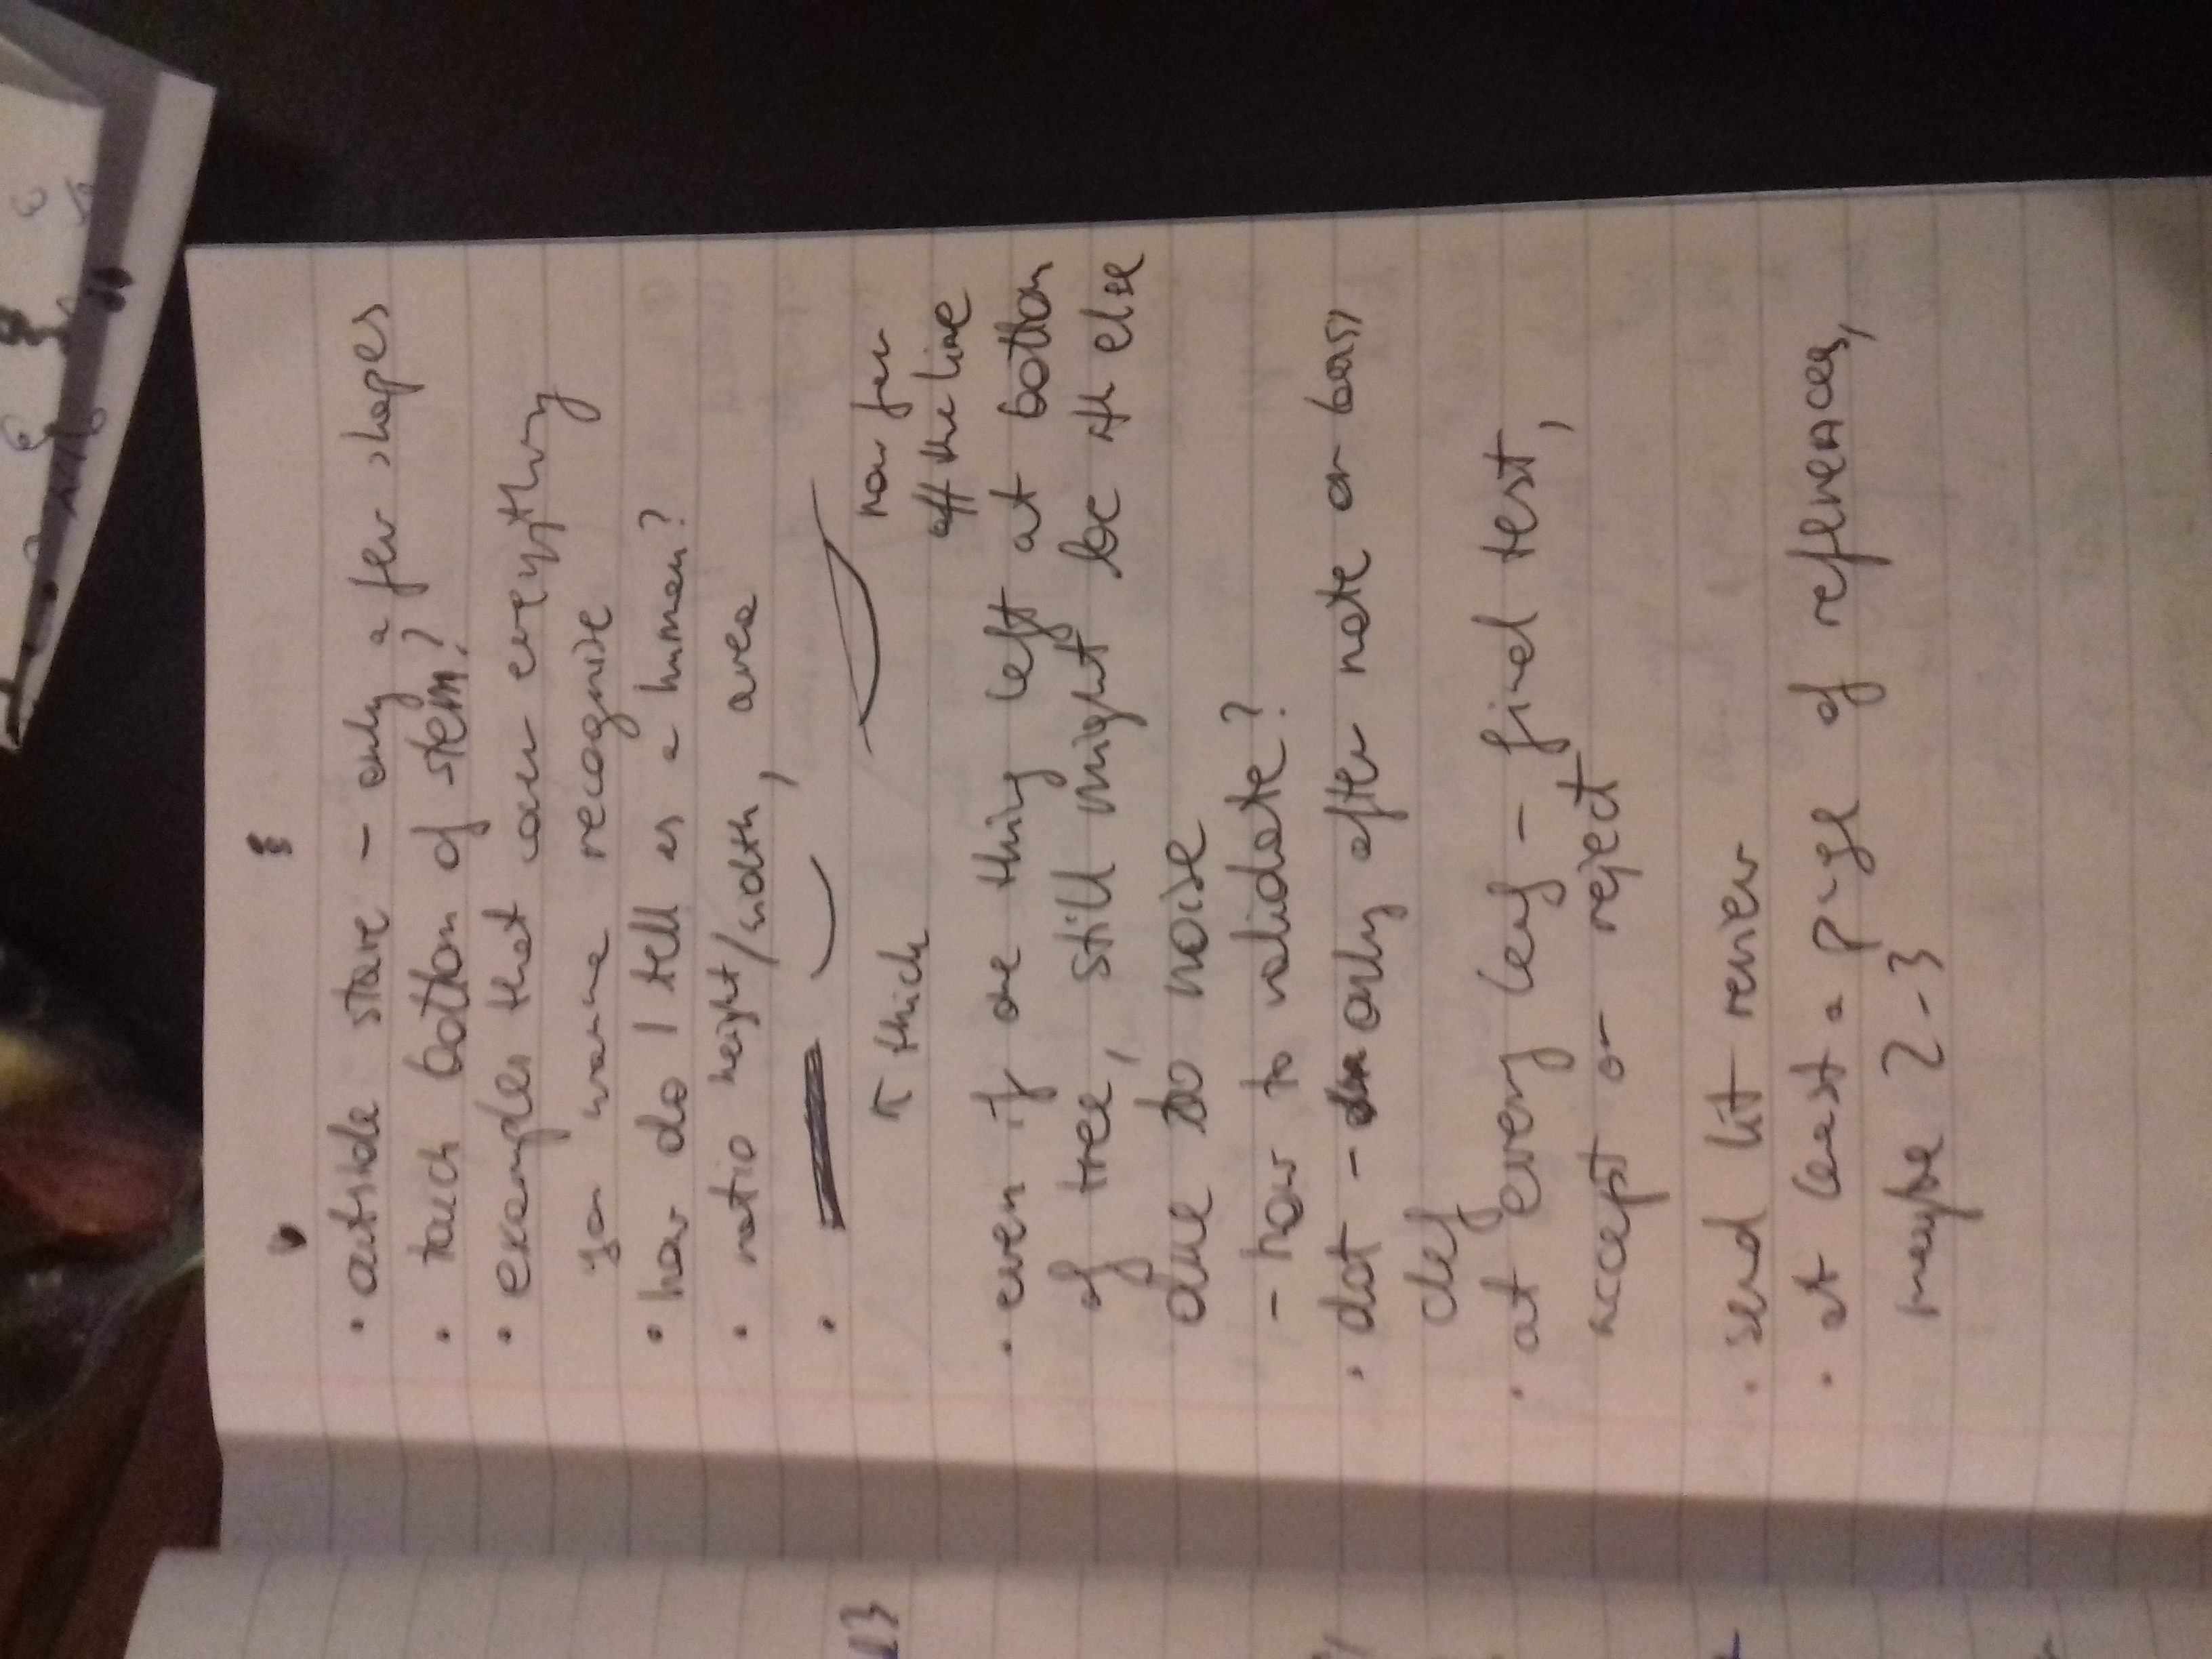 • outside stave - only a few shapes
• touch bottom of stem?
• examples that cover everything
you wanna recognise
• how do I tell as a human?
• ratio height/width, area
•
↖ thick
how far
off the line
• even if one thing left at bottom
of tree, still might be sth else
due to noise
- how to validate?
• dot - only after note or bass
clef
• at every leaf - final test,
accept or reject
• send lit review
• at least a page of references,
maybe 2-3